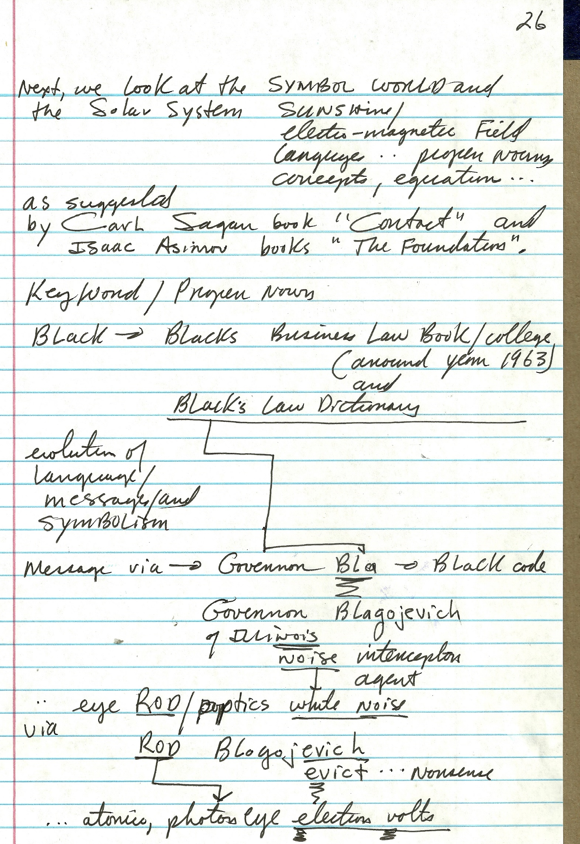 26
Next, we look at the SYMBOL WORLD and
the Solar System SUNSHINE/
electro-magnetic Field
languages.. proper nouns,
concepts, equation ...
as suggested
by Carl Sagan book "Contact" and
ISAAC Asimov books "The Foundation".
KeyWord / Proper Nouns
BLACK → BLACKS Business Law Book/college,
(around year 1963)
and
BLACK's Law Dictionary
evolution of
language/
messages/and
SYMBOLISM
Message via → Governor Bla → BLACK code
Governor Blagojevich
of ILLinois
noise interceptor
agent
.. eye ROD/ optics white noise
via
ROD Blagojevich
evict ... Nonsense
... atomic, photon eye electron volts